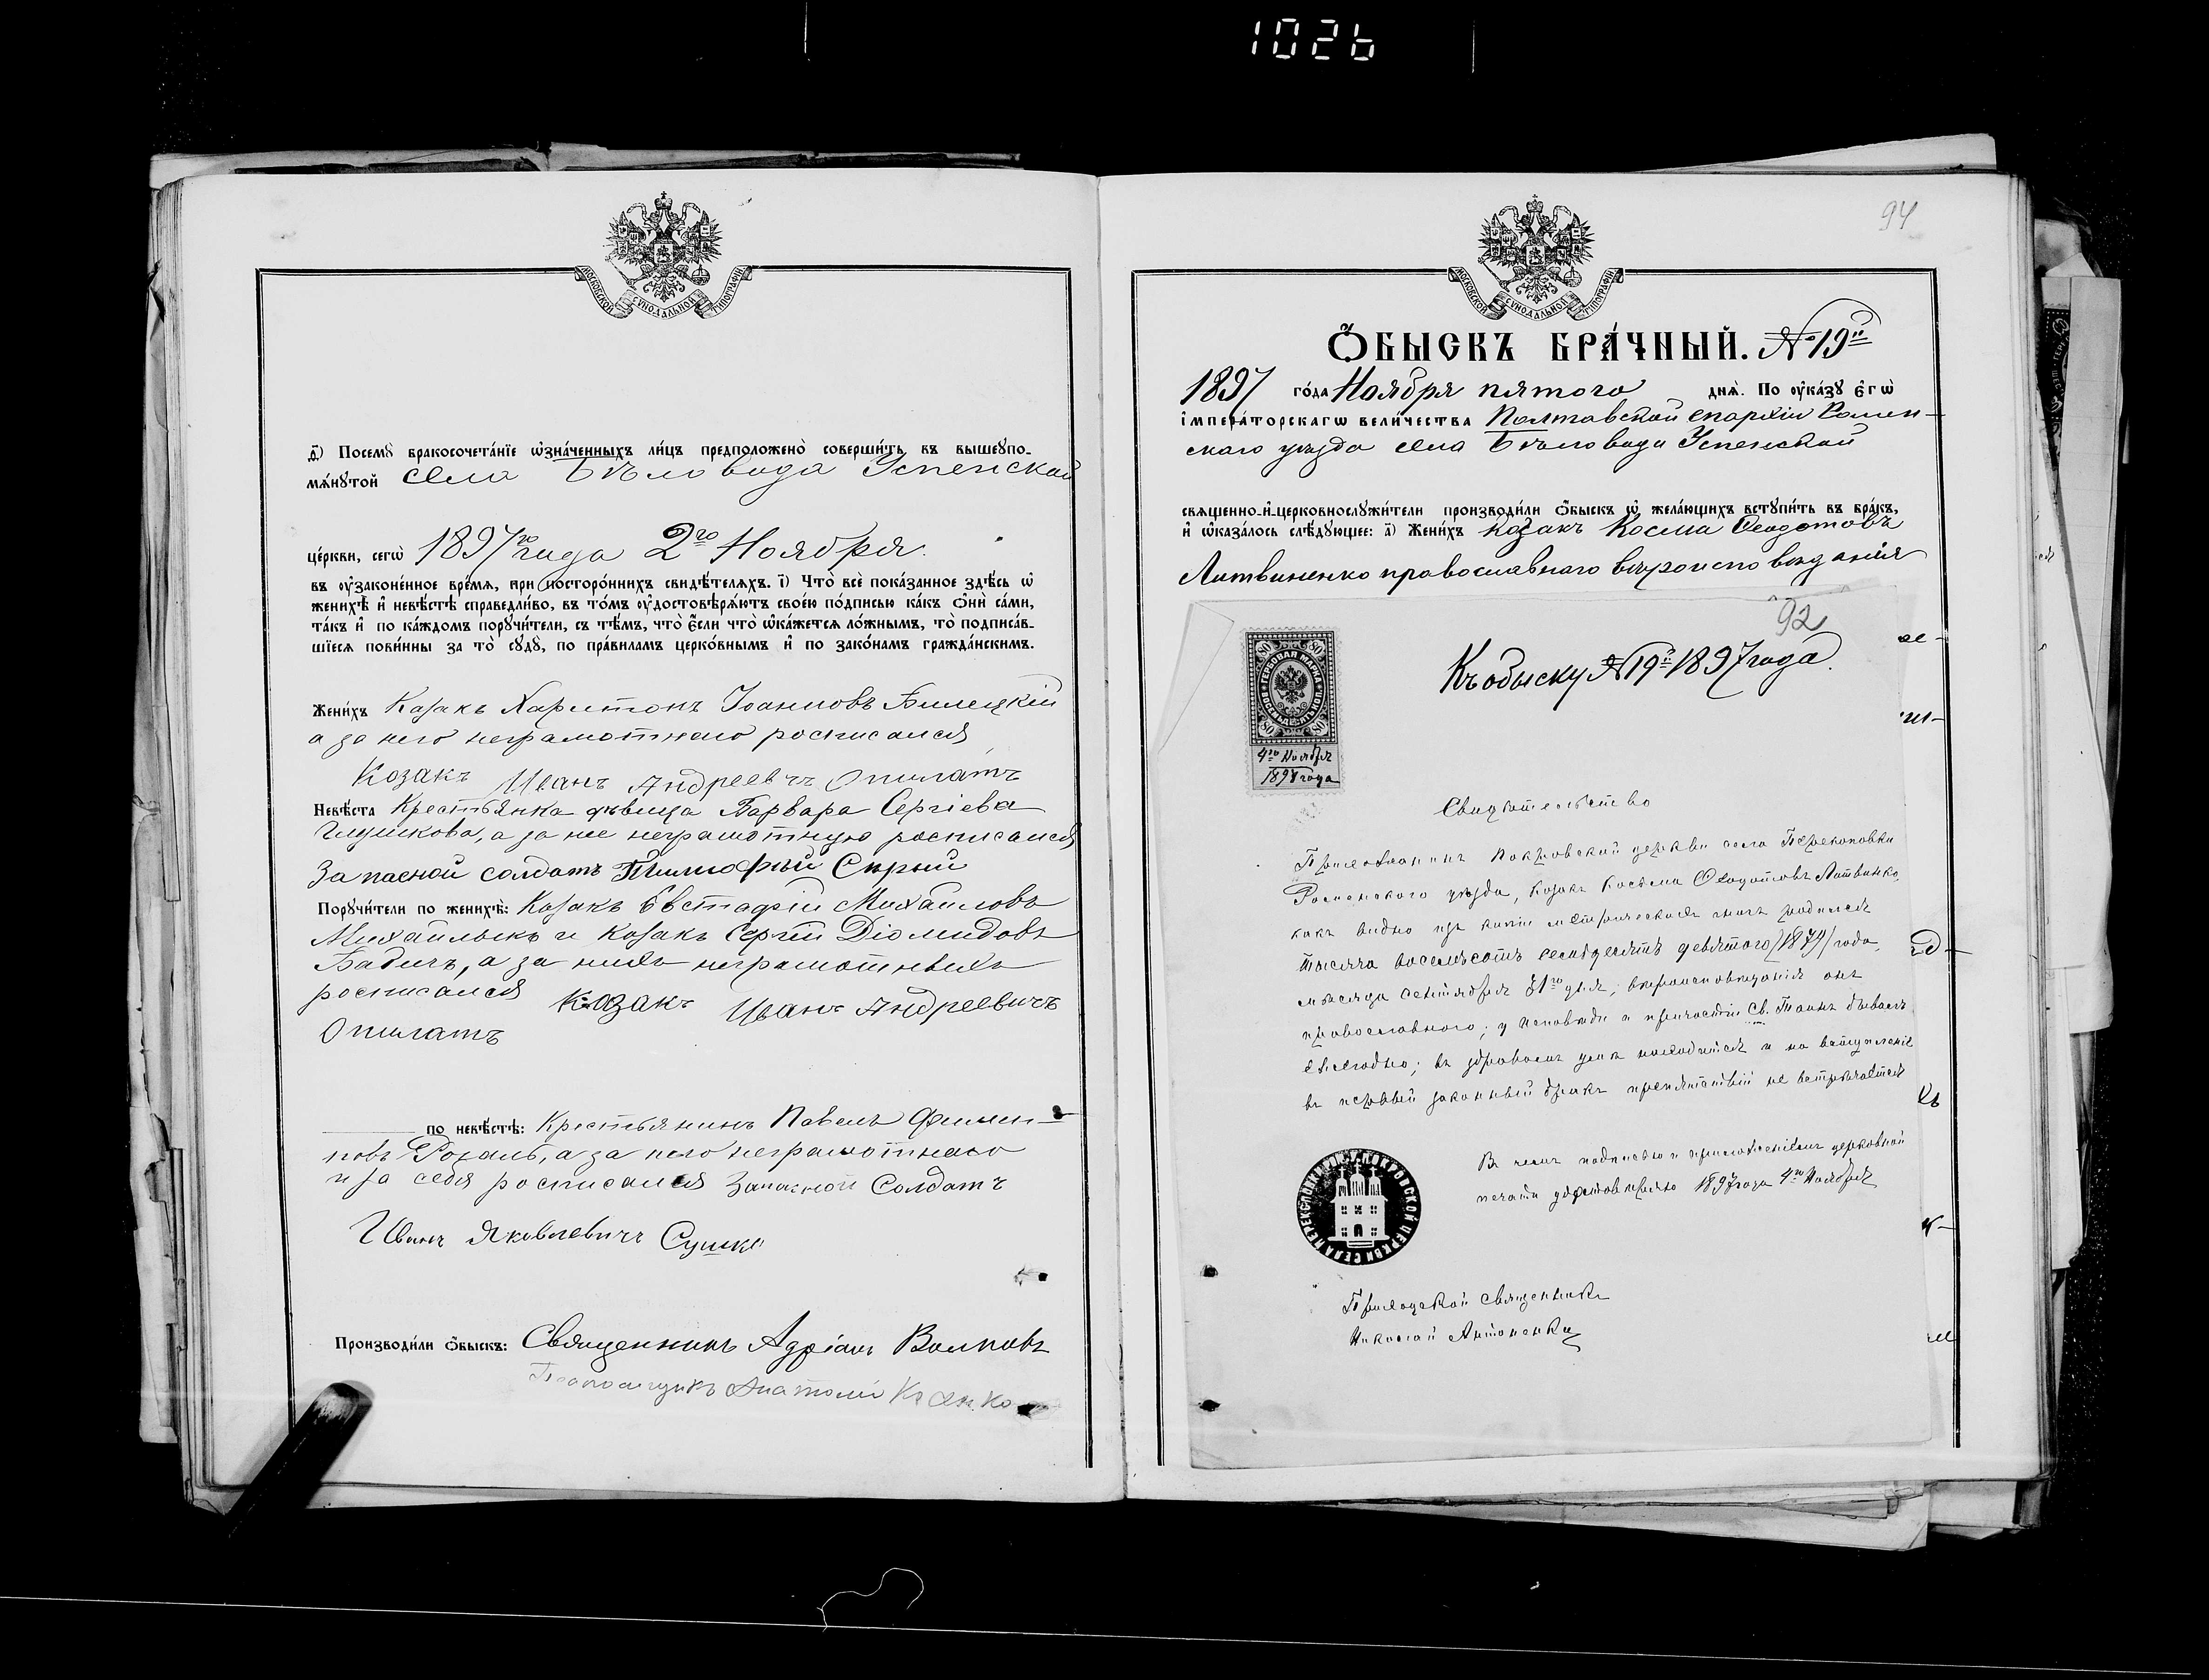 1026
МОСКОВСКОЙ СѴНОДАЛЬНОЙ ТИПОГРАФІИ
д҃) Посемꙋ̀ бракосочета́нїе ѡ҆зна́ченныхъ ли́цъ предположено̀ соверши́ть въ вышеꙋпо-
мѧ́нꙋтой села Бѣловода Успенской
це́ркви, сегѡ̀ 1897го года 2го Ноября.
въ ᲂу҆зако́ненное вре́мѧ, при посторо́ннихъ свидѣ́телѧхъ. і҃) Что̀ всѐ пока́занное здѣ́сь ѡ҆
женихѣ̀ и҆ невѣ́стѣ справедли́во, въ то́мъ ᲂу҆достовѣрѧ́ютъ свое́ю по́дписью ка́къ ѻ҆нѝ са́ми,
та́къ и҆ по ка́ждомъ порꙋчи́тели, съ тѣ́мъ, что̀ є҆́сли что̀ ѡ҆ка́жетсѧ ло́жнымъ, то̀ подписа́в-
шїесѧ пови́нны за то̀ сꙋдꙋ̀, по пра́виламъ церко́внымъ и҆ по зако́намъ гражда́нскимъ.
Жени́хъ Козакъ Харитонъ Іоанновъ Билецкій
а за него неграмотнего росписался
Козакъ Иванъ Андреевчъ Опилатъ
Невѣ́ста Крестьянка дѣвица Варвара Сергіева
Глушкова, а за нее неграмотную росписался
Запасной солдатъ Тимофый Сирый
Порꙋчи́тели по женихѣ̀: Козакъ Евстафій Михайловъ
Михайлыкъ и Козакъ Сергій Діомидовъ
Бабичъ, а за нихъ неграмотныхъ
росписался Козакъ Иванъ Андреевичъ
Опилатъ
по невѣ́стѣ: Крестьянинъ Павелъ Филип-
повъ а за него неграмотнаго
и за себя росписался Запасной Солдатъ
Иванъ Яковлевичъ Сушко
Производи́ли ѻ҆́быскъ: Священникъ Адріанъ Волковъ
Псаломщикъ Анатолій
94
МОСКОВСКОЙ СѴНОДАЛЬНОЙ ТИПОГРАФІИ
Ѻ҆́БЫСКЪ БРА́ЧНЫЙ. №19й
1897 го́да Ноября пятого днѧ̀. По ᲂу҆ка́зꙋ є҆гѡ̀
і҆мпера́торскагѡ вели́чества Полтавской епархіи Ромен-
скаго уѣзда села Бѣловода Успенской
свѧщенно-и҆-церковнослꙋжи́тели производи́ли ѻ҆́быскъ ѡ҆ жела́ющихъ встꙋпи́ть въ бра́къ,
и҆ ѡ҆каза́лось слѣ́дꙋющее: а҃) Жени́хъ козакъ Косма Феодотовъ
Литвиненко православнаго вѣроисповѣданія
92
Къ обыску №19й 1897 года.
80 80
ГЕРБОВАЯ МАРКА ВОСЕМЬДЕСЯТЪ КОП.
80 80
4го Ноября
1897 года
Свидѣтельство
Прихожанинъ Покровской церкви села Перекоповки
Роменского уѣзда, козакъ Косьма Феодотовъ Литвинко,
какъ видно изъ копіи метрическихъ книгъ родился
тысяча восемьсотъ семьдесятъ девятого /1879/ года,
мѣсяца сентября дня; вѣроисповѣданія онъ
православного; у исповѣди и причастіи Св. Таинъ бываетъ
ежегодно; въ здравомъ умѣ находится и на вступленіе
въ первый законный бракъ препятствій не встрѣчается
Въ чемъ подписью и приложеніемъ церковной
печати удостовѣряю 1897 года 4го Ноября
ПОКРОВСКОЙ ЦЕРКВИ СЕЛА
Приходской священникъ
Николай Антоненко